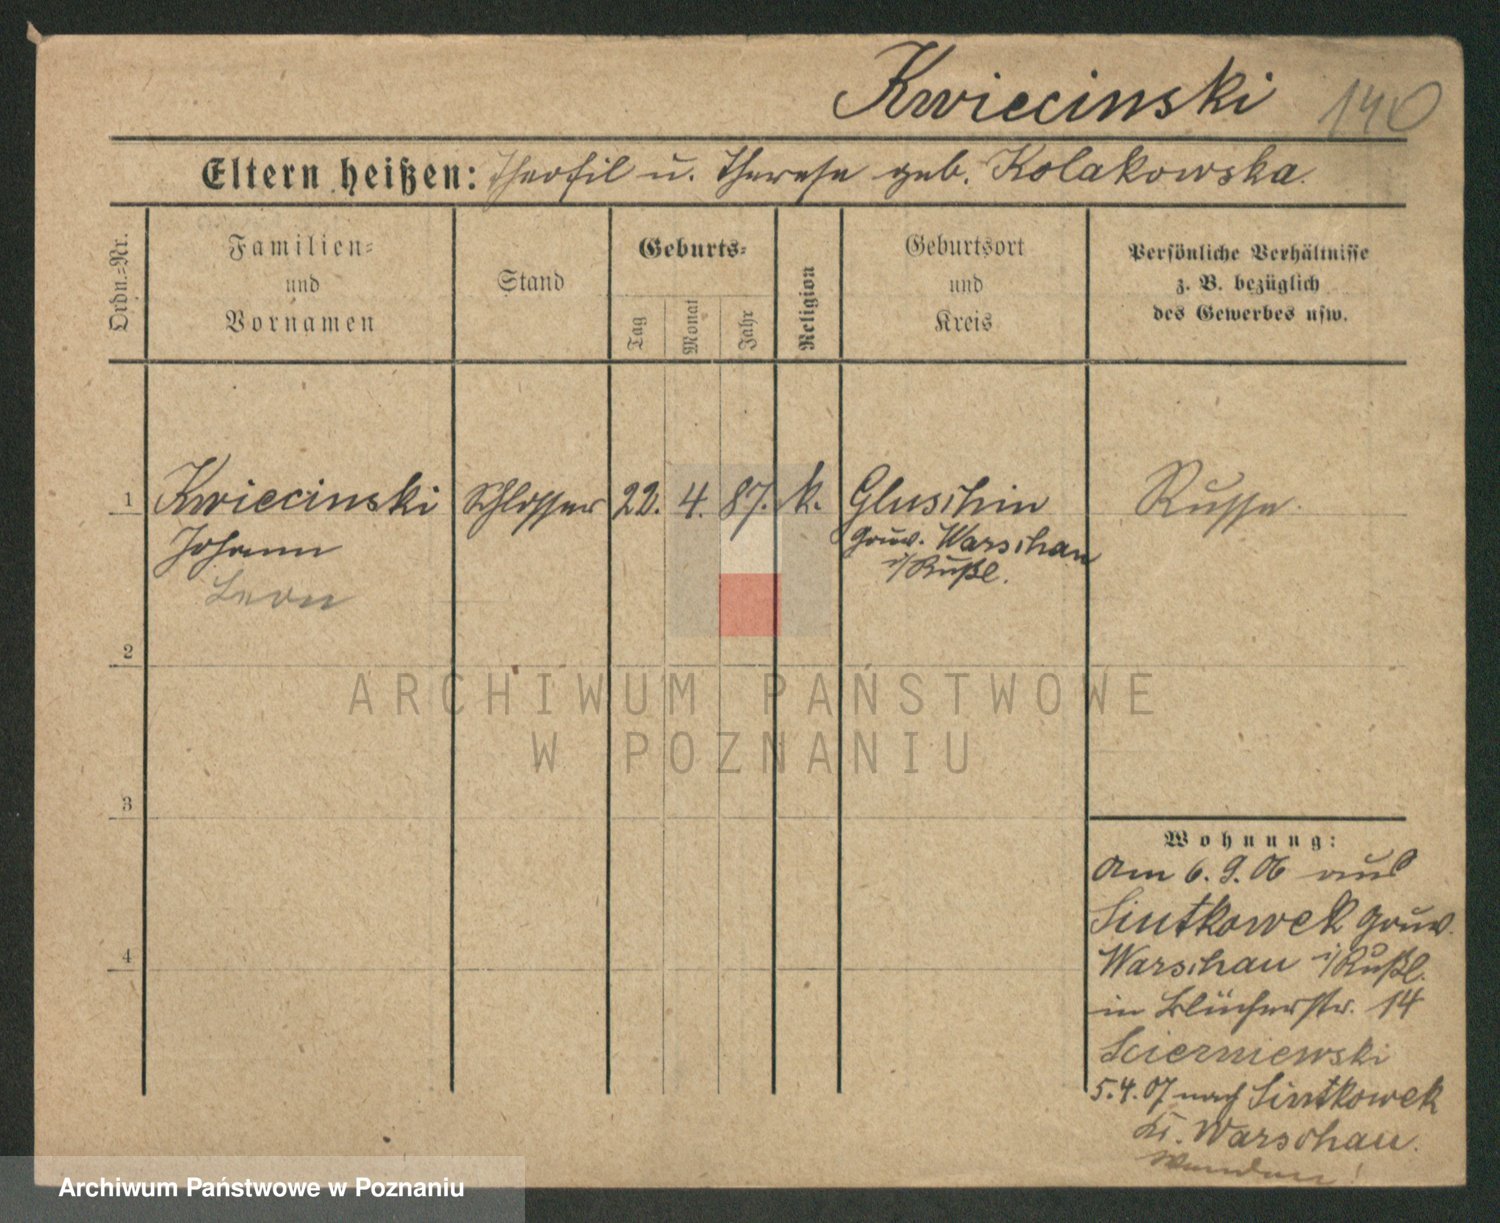 Kwiecinski 140
Eltern heißen: Theofil u. Therese geb. Kolakowska.
Ordn.=Nr.
Familien=
und
Vornamen
Stand
Geburts=
Tag
Monat
Jahr
Religion
Geburtsort
und
Kreis
Persönliche Verhältnisse
z. B. bezüglich
des Gewerbes usw.
1 Kwiecinski Schlosser 22. 4. 87. k. Gluschin Russe.
Johann Gouv. Warschau
Leon i/Rußl.
2
ARCHIWUM PAŃSTWOWE
W POZNANIU
3
Wohnung:
Am 6. 9. 06 aus
Sintkowek Gouv.
Warschau i/Rußl.
in Blücherstr. 14
Scierniewski
5. 4. 07 nach Sintkowek
Kr. Warschau.
4
Wenden!
Archiwum Państwowe w Poznaniu